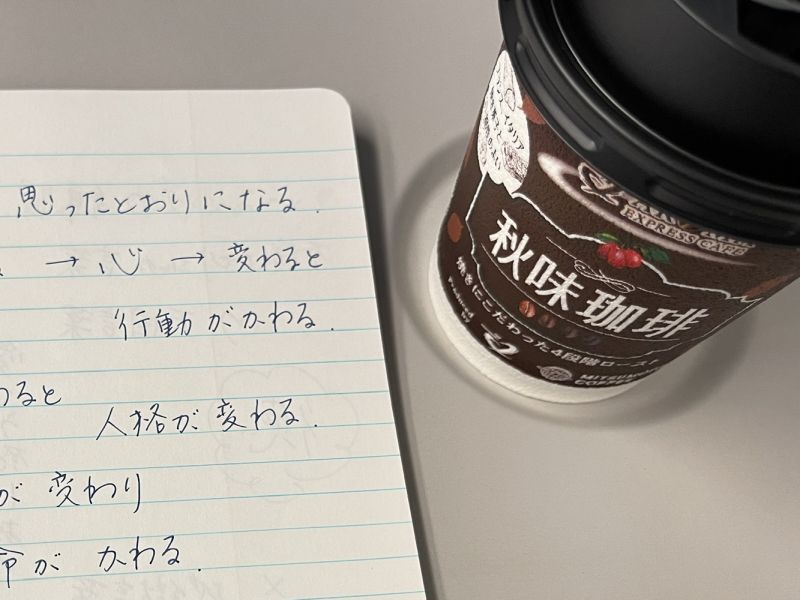 思ったとおりになる.
→ 心 → 変わると
行動がかわる.
わると
人格が変わる.
が変わり
命がかわる.
イタリア
EXPRESS CAFE
秋味珈琲
焼きにこだわった4段階ロースト
Produced by
MITSUMOTO
COFFEE